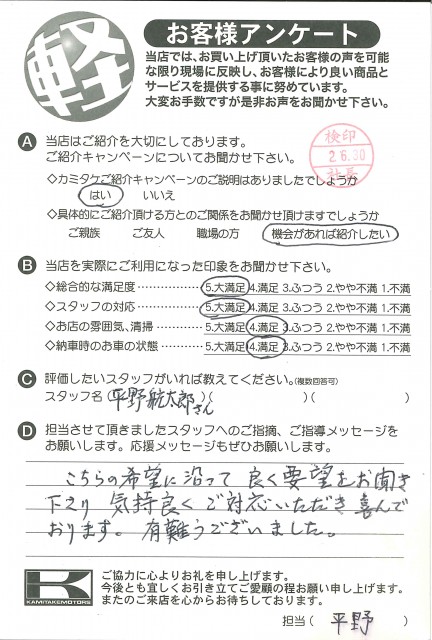 軽
お客様アンケート
当店では、お買い上げ頂いたお客様の声を可能
な限り現場に反映し、お客様により良い商品と
サービスを提供する事に努めています。
大変お手数ですが是非お声をお聞かせ下さい。
A 当店はご紹介を大切にしております。
ご紹介キャンペーンについてお聞かせ下さい。
検印
26.30
社長
◇カミタケご紹介キャンペーンのご説明はありましたでしょうか
はい いいえ
◇具体的にご紹介頂ける方とのご関係をお聞かせ頂けますでしょうか
ご親族 ご友人 職場の方 機会があれば紹介したい
B 当店を実際にご利用になった印象をお聞かせ下さい。
◇総合的な満足度…………… 5.大満足 4.満足 3.ふつう 2.やや不満 1.不満
◇スタッフの対応…………… 5.大満足 4.満足 3.ふつう 2.やや不満 1.不満
◇お店の雰囲気、清掃……… 5.大満足 4.満足 3.ふつう 2.やや不満 1.不満
◇納車時のお車の状態……… 5.大満足 4.満足 3.ふつう 2.やや不満 1.不満
C 評価したいスタッフがいれば教えてください。(複数回答可)
スタッフ名(平野航太郎さん)( )( )
D 担当させて頂きましたスタッフへのご指摘、ご指導メッセージを
お願いします。応援メッセージもぜひお願いします。
こちらの希望に沿って良く要望をお聞き
下さり気持良くご対応いただき喜んで
おります。有難うございました。
K
KAMITAKEMOTORS
ご協力に心よりお礼を申し上げます。
今後とも宜しくお引き立てご愛顧の程お願い申し上げます。
またのご来店を心からお待ちしております。
担当( 平野 )